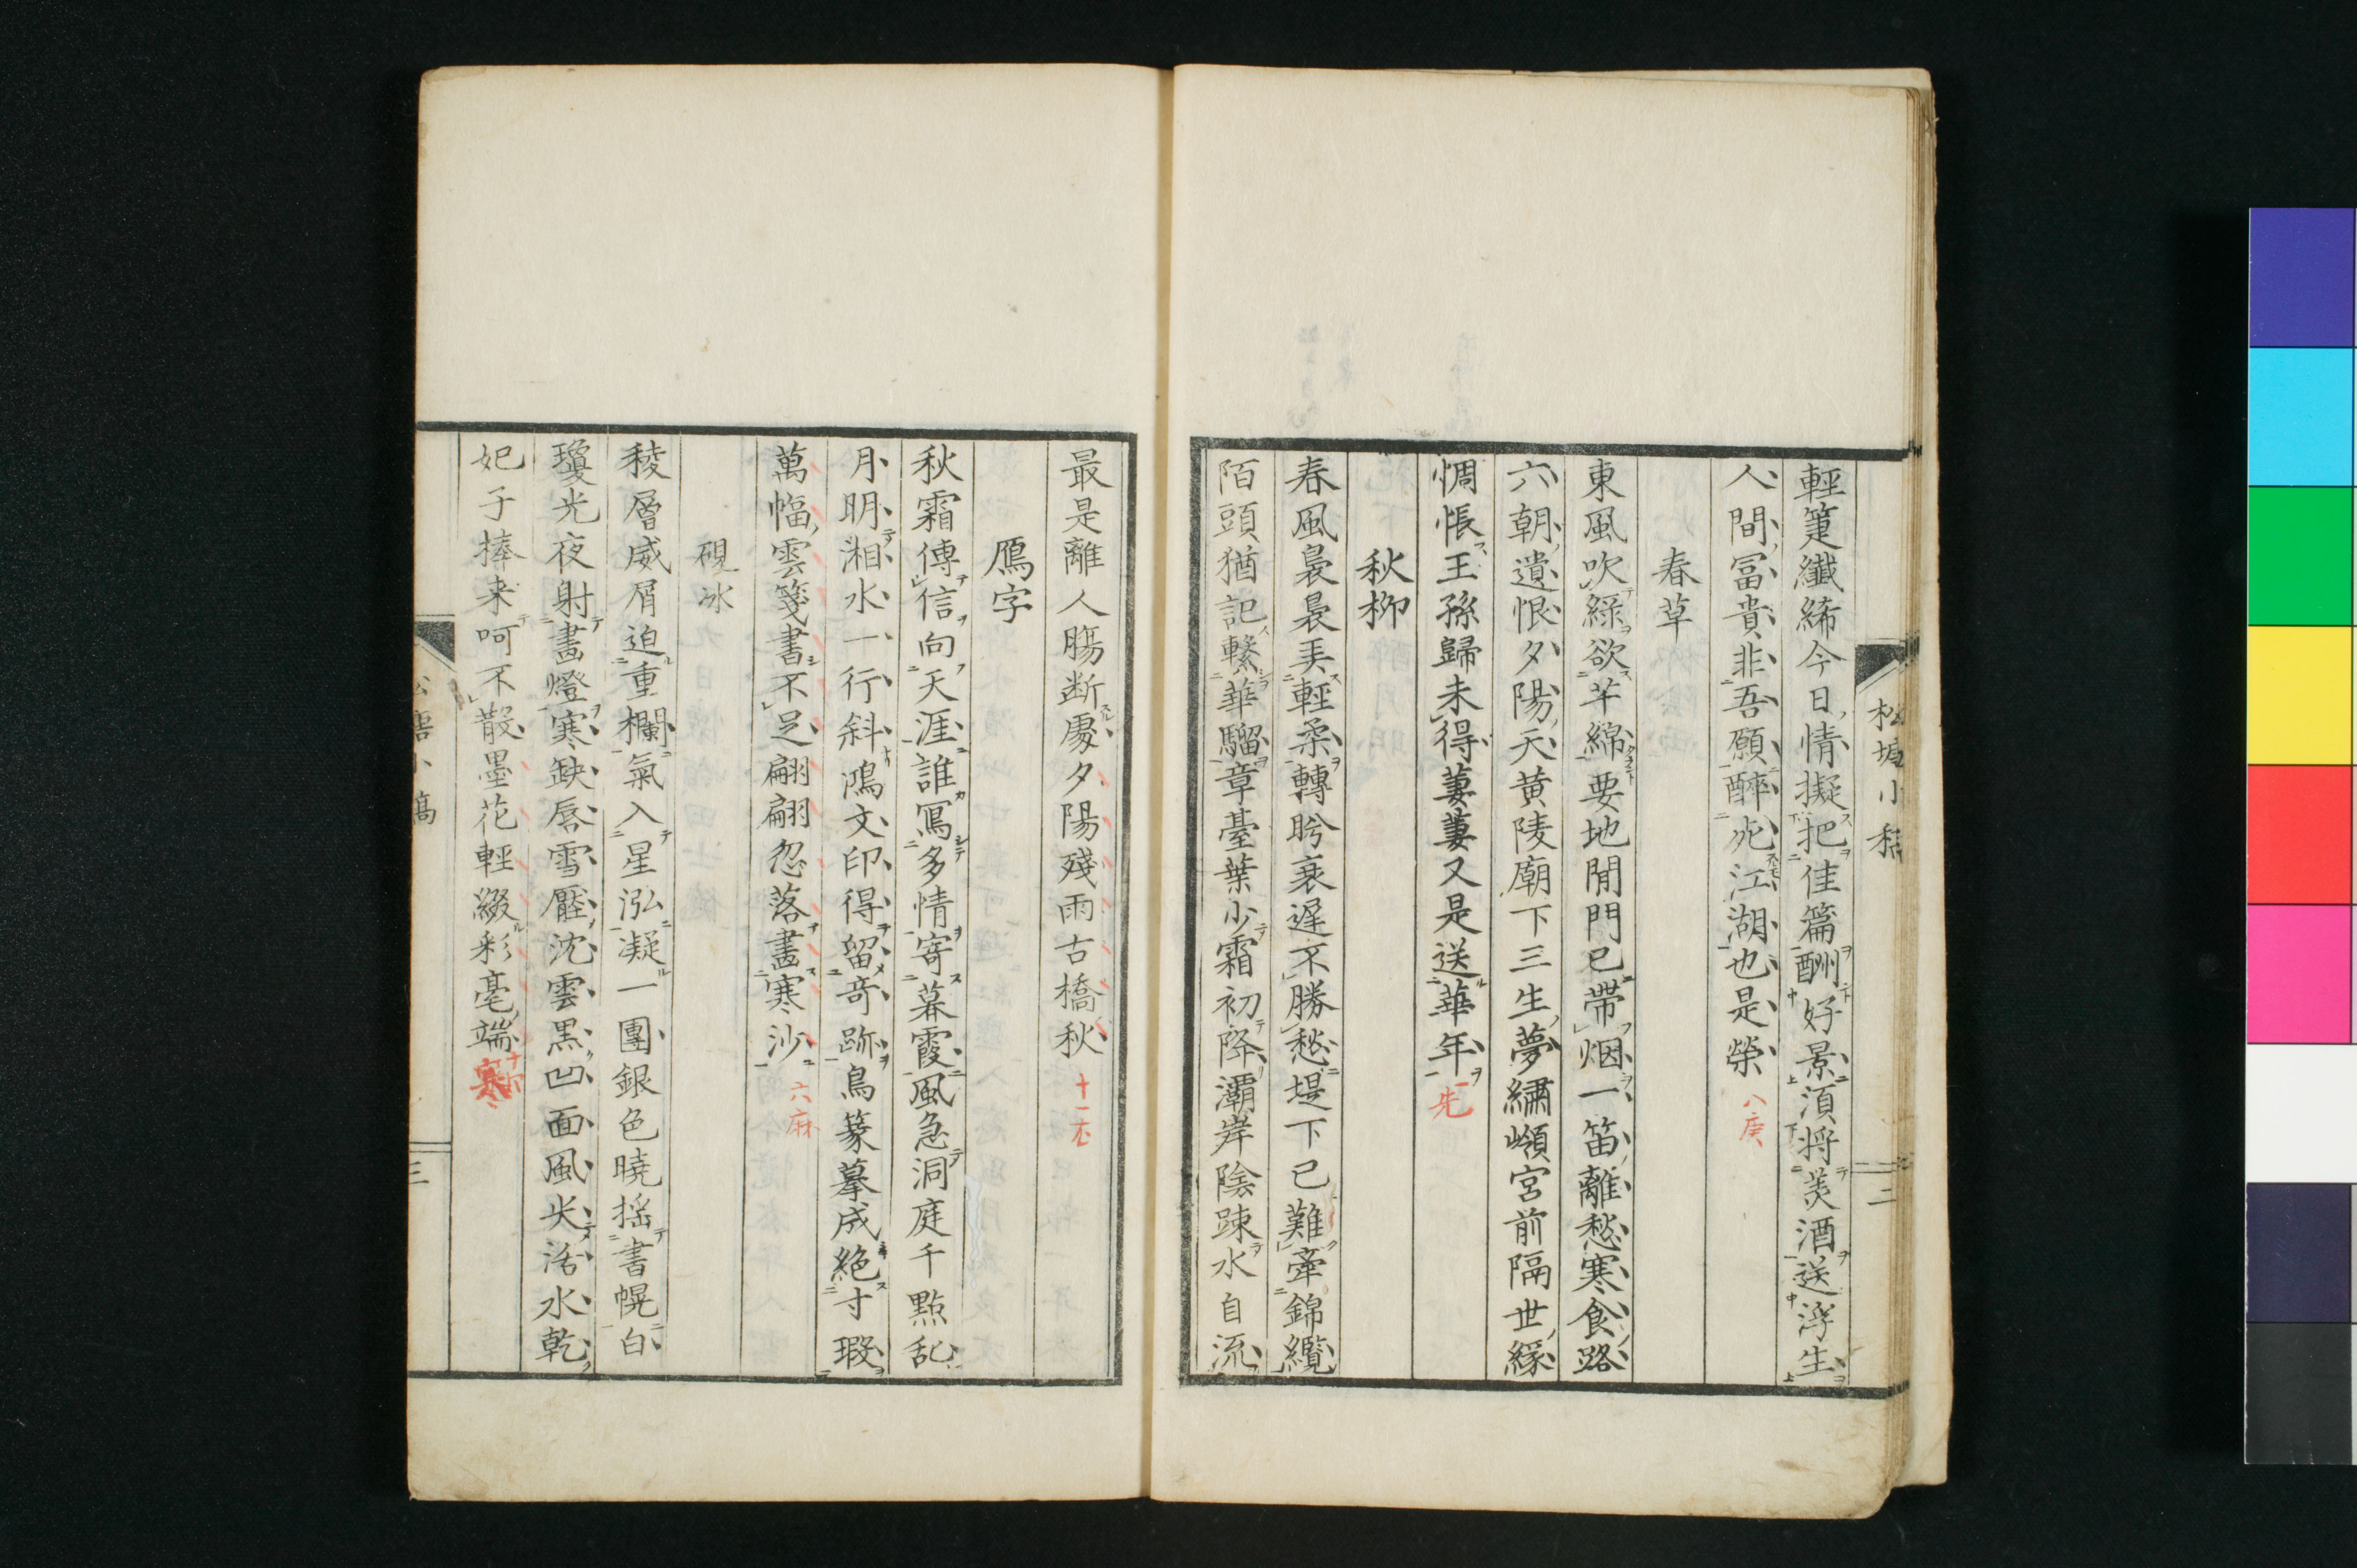 輕箑纖絺今日情擬把佳篇酬好景湏将羙酒送浮生
人間冨貴非吾願醉死江湖也是榮 八庚
春草
東風吹綠欲芊綿要地閒門已帶烟一笛離愁寒食路
六朝遺恨夕陽天黄陵廟下三生夢繡嶺宮前隔世緣
惆悵王孫歸未得萋萋又是送華年 一先
秋柳
春風裊裊美輕柔轉盻衰遲不勝愁堤下已難牽錦纜
陌頭猶記繫華騮章臺葉少霜初降灞岸陰踈水自流
松塘小稿
二
最是離人腸断處夕陽殘雨古橋秋 十一尤
鴈字
秋霜傳信向天涯誰冩多情寄暮霞風急洞庭千點乱
月明湘水一行斜鴻文印得留奇跡鳥篆摹成絶寸瑕
萬幅雲箋書不足翩翩忽落畫寒沙 六麻
硯冰
稜層威屑迫重欄氣入星泓凝一團銀色曉揺書幌白
瓊光夜射畫燈寒缺唇雪壓沈雲黒凹面風尖活水乾
妃子捧来呵不散墨花輕綴彩毫端 十四寒
三